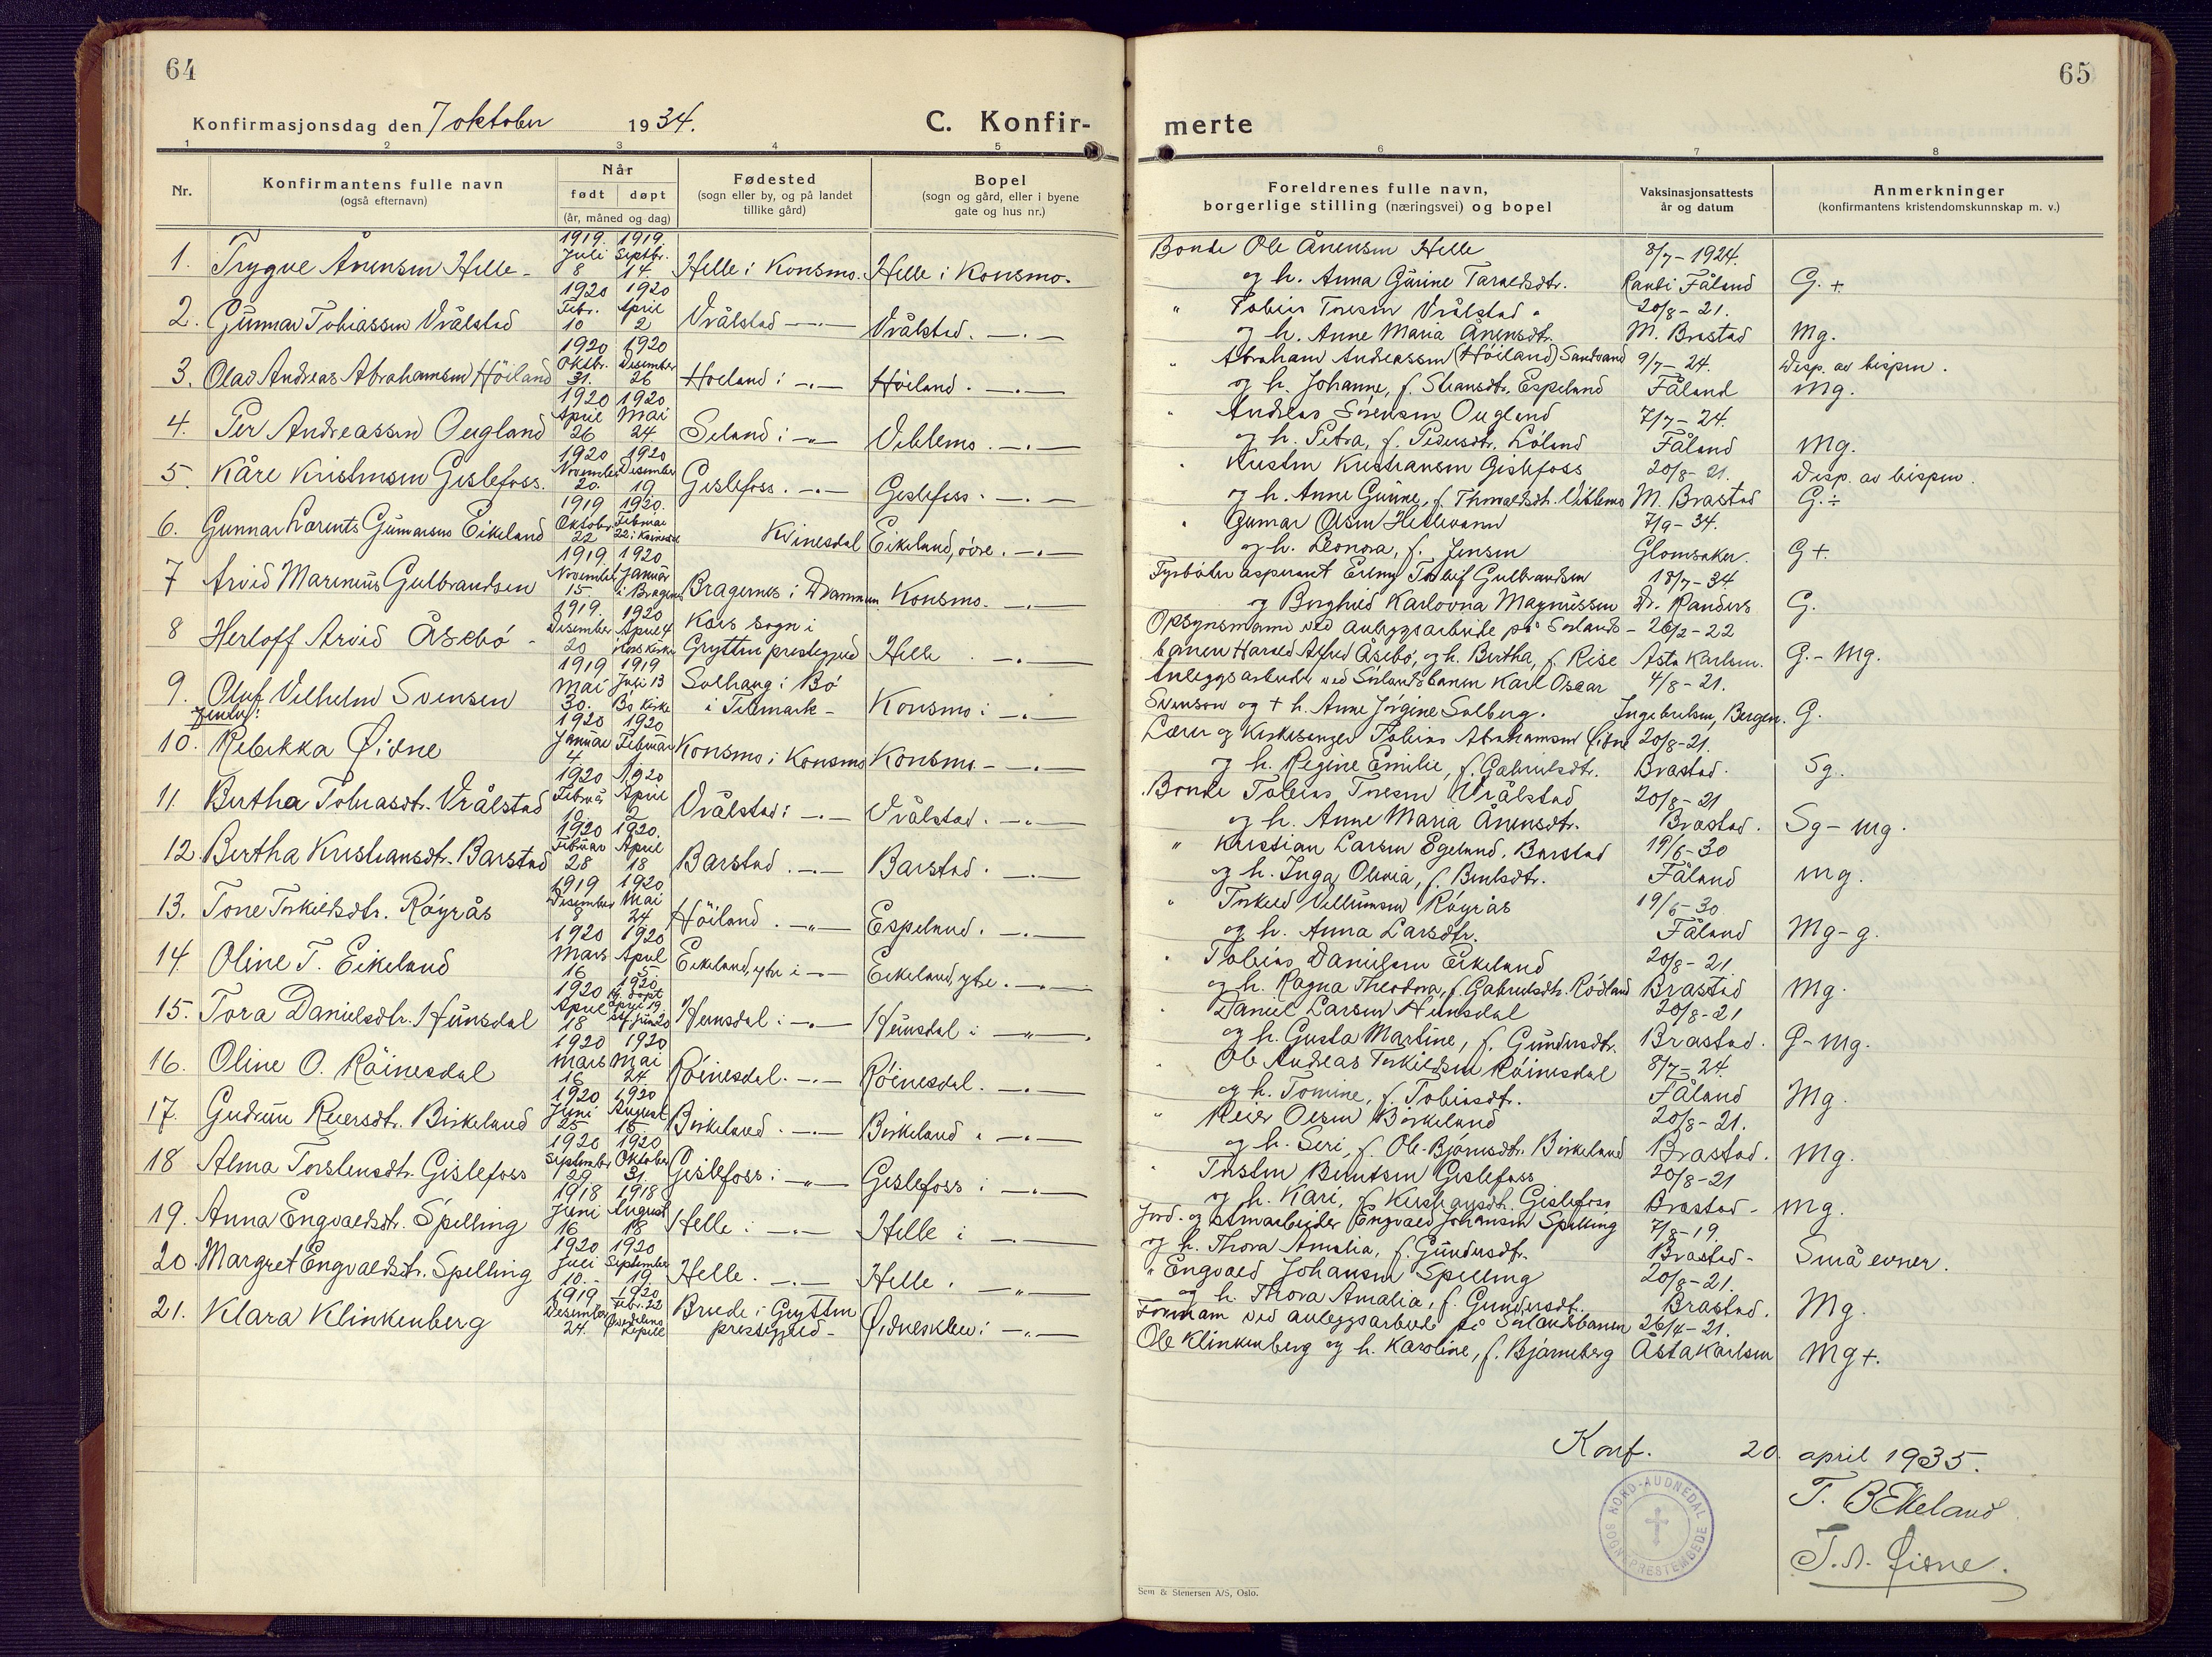 64
Konfirmasjonsdag den 7 oktober 1934.
C. Konfir-
1 2 3 4 5
Nr.
Konfirmantens fulle navn
(også efternavn)
Når
født døpt
(år, måned og dag)
Fødested
(sogn eller by, og på landet
tillike gård)
Bopel
(sogn og gård, eller i byene
gate og hus nr.)
1. Trygve Ånensen Helle - 1919. Juli 8 1919. Septbr. 14. Helle i Konsmo. Helle i Konsmo.
2. Gunnar Tobiassen Vrålstad 1920 Febr. 10 1920 April 2 Vrålstad —"— Vrålstad. —"—
3. Olav Andreas Abrahamsen Höiland 1920 Oktbr. 31. 1920 Desember 26 Höiland i —"— Höiland. —"—
4. Per Andreassen Ougland 1920 April 26 1920 Mai 24 Seland i —"— Viblemo. —"—
5. Kåre Kristensen Gislefoss. 1920 November 20. 1920 Desember 19 Gislefoss. —"— Gislefoss. —"—
6. Gunnar Laurents Gunnarsen Eikeland 1919 Oktober 22 1920. Februar 22 i Kvinesdal Kvinesdal Eikeland, övre. —"—
7 Arvid Marenius Gulbrandsen 1919. November 15 1920 Januar i Bragernes Bragernes i Drammen Konsmo. —"—
8 Herloff Arvid Åsebó - 1919. Desember 20 1920 April 4 i Kors kirke Kors sogn i Grytten prestegjeld Helle. —"—
9. Oluf Vilhelm Svensen 1919 Mai 30. 1919 Juli 13 Bö Kirke Solhaug i Bö i Telemark - Konsmo i —"—
Piker:
10. Rebekka Øidne 1920 Januar 4 1920 Februar 1 Konsmo i Konsmo Konsmo - —"—
11. Bertha Tobiasdtr. Vrålstad 1920 Februar 10. 1920 April 2 Vrålstad i —"— Vrålstad. —"—
12. Bertha Kristiansdtr. Barstad 1920 Februar 28 1920. April 18 Barstad. —"— Barstad. —"—
13. Tone Torkildsdtr. Röyrås 1919 Desember 8 1920. Mai 24 Höiland. —"— Espeland. —"—
14. Oline T. Eikeland 1920 Mars 16 1920 April 5 Eikeland, ytre i —"— Eikeland, ytre. —"—
15. Tora Danielsdtr. Hunsdal 1920 April 18 1920. Hj. döpt april 19. Hunsdal i —"— Hunsdal i —"—
16. Oline O. Röinesdal 1920 Mars 16 1920 Mai 24 Röinesdal. —"— Röinesdal. —"—
17. Gudrun Reiersdtr. Birkeland 1920 Juni 25 1920 August 15 Birkeland. —"— Birkeland. —"—
18 Alma Torstensdtr. Gislefoss 1920 September 29 1920 Oktober 31. Gislefoss i —"— Gislefoss i —"—
19. Anna Engvaldsdtr. Spilling 1918 Juni 16 1918 August 18 Helle i —"— Helle i —"—
20. Margret Engvaldsdtr. Spilling 1920 Juli 10. 1920 September 19. Helle. —"— Helle. —"—
21. Klara Klinkenberg 1919 Desember 24. 1920 Febr. 22 kapell Brude i Grytten prestegjeld - Øidneskleiv i —"—
65
merte
6 7 8
Foreldrenes fulle navn,
borgerlige stilling (næringsvei) og bopel
Vaksinasjonsattests
år og datum
Anmerkninger
(konfirmantens kristendomskunnskap m. v.)
Bonde Ole Ånensen Helle 8/7 - 1924.
og h. Anna Gurine Tarieldsdtr. Randi Fåland G. +
" Tobias Toresen Vrålstad 20/8 - 21.
og h. Anne Maria Ånensdtr. M. Brastad Mg.
" Abraham Andreassen (Höiland) Sandvand 9/7 - 24. Disp. av bispen.
og h. Johanne, f. Espeland Fåland Mg.
" Andreas Sörensen Ougland 7/7 - 24.
og h. Petra, f. Pedersdtr. Löland Fåland Mg.
" Kristen Kristiansen Gislefoss 20/8 - 21. Disp. av bispen.
og h. Anne Gurine, f. Thorvaldsdtr. Viblemo M. Brastad G. ÷
" Gunnar Olsen 7/9 - 34.
og h. Leonora, f. Jensen Glomsaker. G +.
Fyrböter aspirant Torleif Gulbrandsen 18/7 - 34
og Borghild Karlovna Magnussen Dr. Randers G.
Opsynsmann ved anleggsarbeide på Sörlands- 26/2 - 22
banen Harald Alfred Åsebó, og h. Bertha, f. Rise Asta Karlsen. G. - Mg.
Anleggsarbeider ved Sörlandsbanen Karl Oscar 4/8 - 21.
Svenson og + h. Anne Jörgine Solberg. Ingebrigtsen, Bergen. G.
Lærer og Kirkesanger Tobias Abrahamsen Øidne 20/8 - 21.
og h. Regine Emilie, f. Gabrielsdtr. Brastad. Sg.
Bonde Tobias Toresen Vrålstad 20/8 - 21
og h. Anne Maria Ånensdtr. Brastad. Sg - mg.
" Kristian Larsen Egeland, Barstad 19/6 - 30
og h. Inga Olivia, f. Bentsdtr. Fåland mg.
" Torkild Villumsen Röyrås 19/6 - 30.
og h. Anna Larsdtr. Fåland Mg - g.
" Tobias Danielsen Eikeland 20/8 - 21
og h. Ragna Theodora, f. Gabrielsdtr. Rödland Brastad Mg.
" Daniel Larsen Hunsdal 20/8 - 21
og h. Gusta Martine, f. Gundersdtr. Brastad. G - mg.
" Ole Andreas Torkildsen Röinesdal 8/7 - 24
og h. Tomine, f. Tobiasdtr. Fåland Mg.
" Reier Olsen Birkeland 20/8 - 21.
og h. Seri, f. Ole-Björnsdtr. Birkeland Brastad. Mg.
" Torsten Berntsen Gislefoss 20/8 - 21
og h. Kari, f. Kristiansdtr. Gislefoss Brastad - mg.
Jord- og Engvald Johansen Spilling 7/8 - 19.
og h. Thora Amalia, f. Gundersdtr. Brastad - Små evner.
" Engvald Johansen Spilling 20/8 - 21.
og h. Thora Amalia, f. Gundersdtr. Brastad. Mg.
Formann ved anleggsarbeid på Sörlandsbanen 26/4 - 21.
Ole Klinkenberg og h. Karoline, f. Bjørneberg Asta Karlsen Mg +.
Konf. 20. april 1935.
T. B. Eikeland
T. A. Øidne.
NORD-AUDNEDAL SOGNEPRESTEMBEDE
Sem & Stenersen A/S, Oslo.